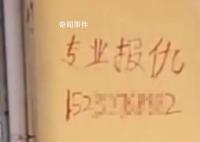 奇闻事件
专业报仇
152
2